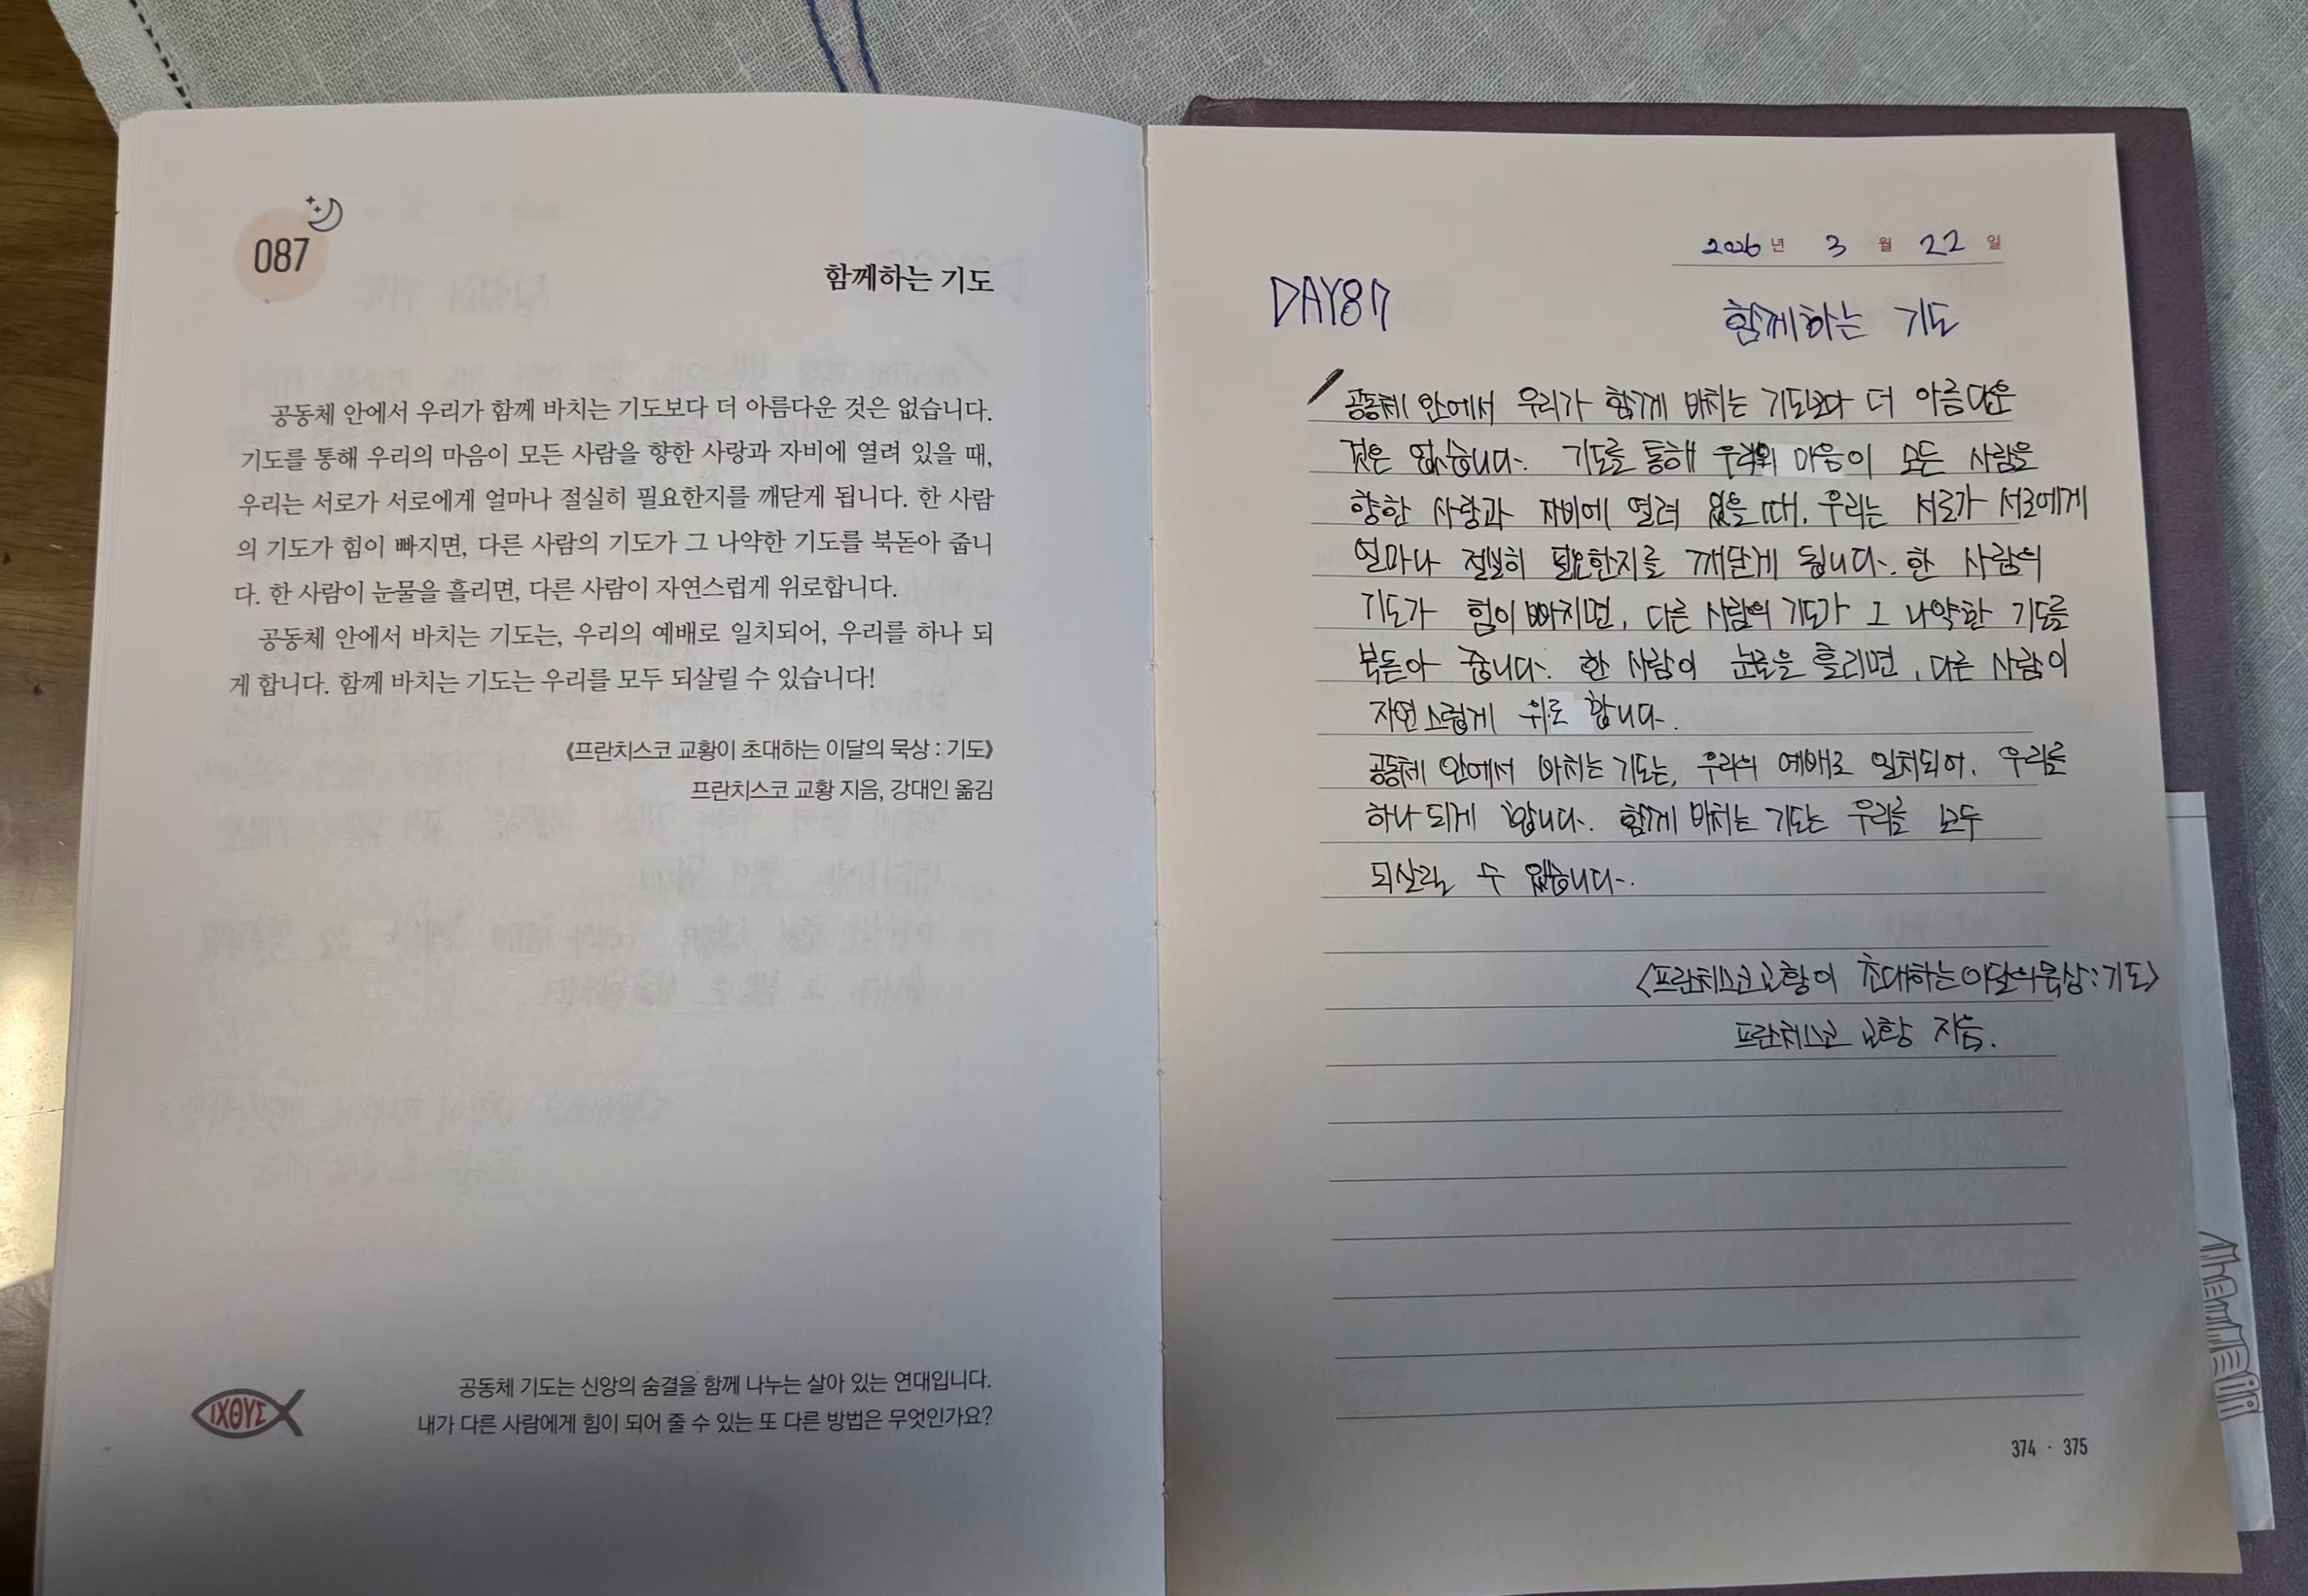 087
함께하는 기도
공동체 안에서 우리가 함께 바치는 기도보다 더 아름다운 것은 없습니다.
기도를 통해 우리의 마음이 모든 사람을 향한 사랑과 자비에 열려 있을 때,
우리는 서로가 서로에게 얼마나 절실히 필요한지를 깨닫게 됩니다. 한 사람
의 기도가 힘이 빠지면, 다른 사람의 기도가 그 나약한 기도를 북돋아 줍니
다. 한 사람이 눈물을 흘리면, 다른 사람이 자연스럽게 위로합니다.
공동체 안에서 바치는 기도는, 우리의 예배로 일치되어, 우리를 하나 되
게 합니다. 함께 바치는 기도는 우리를 모두 되살릴 수 있습니다!
《프란치스코 교황이 초대하는 이달의 묵상 : 기도》
프란치스코 교황 지음, 강대인 옮김
ΙΧΘΥΣ
공동체 기도는 신앙의 숨결을 함께 나누는 살아 있는 연대입니다.
내가 다른 사람에게 힘이 되어 줄 수 있는 또 다른 방법은 무엇인가요?
2026년 3월 22일
DAY87
함께하는 기도
공동체 안에서 우리가 함께 바치는 기도보다 더 아름다운
것은 없습니다. 기도를 통해 우리의 마음이 모든 사람을
향한 사랑과 자비에 열려 있을 때, 우리는 서로가 서로에게
얼마나 절실히 필요한지를 깨닫게 됩니다. 한 사람의
기도가 힘이 빠지면, 다른 사람의 기도가 그 나약한 기도를
북돋아 줍니다. 한 사람이 눈물을 흘리면, 다른 사람이
자연스럽게 위로 합니다.
공동체 안에서 바치는 기도는, 우리의 예배로 일치되어, 우리를
하나 되게 합니다. 함께 바치는 기도는 우리를 모두
되살릴 수 있습니다.
<프란치스코 교황이 초대하는 이달의 묵상:기도>
프란치스코 교황 지음.
374 · 375